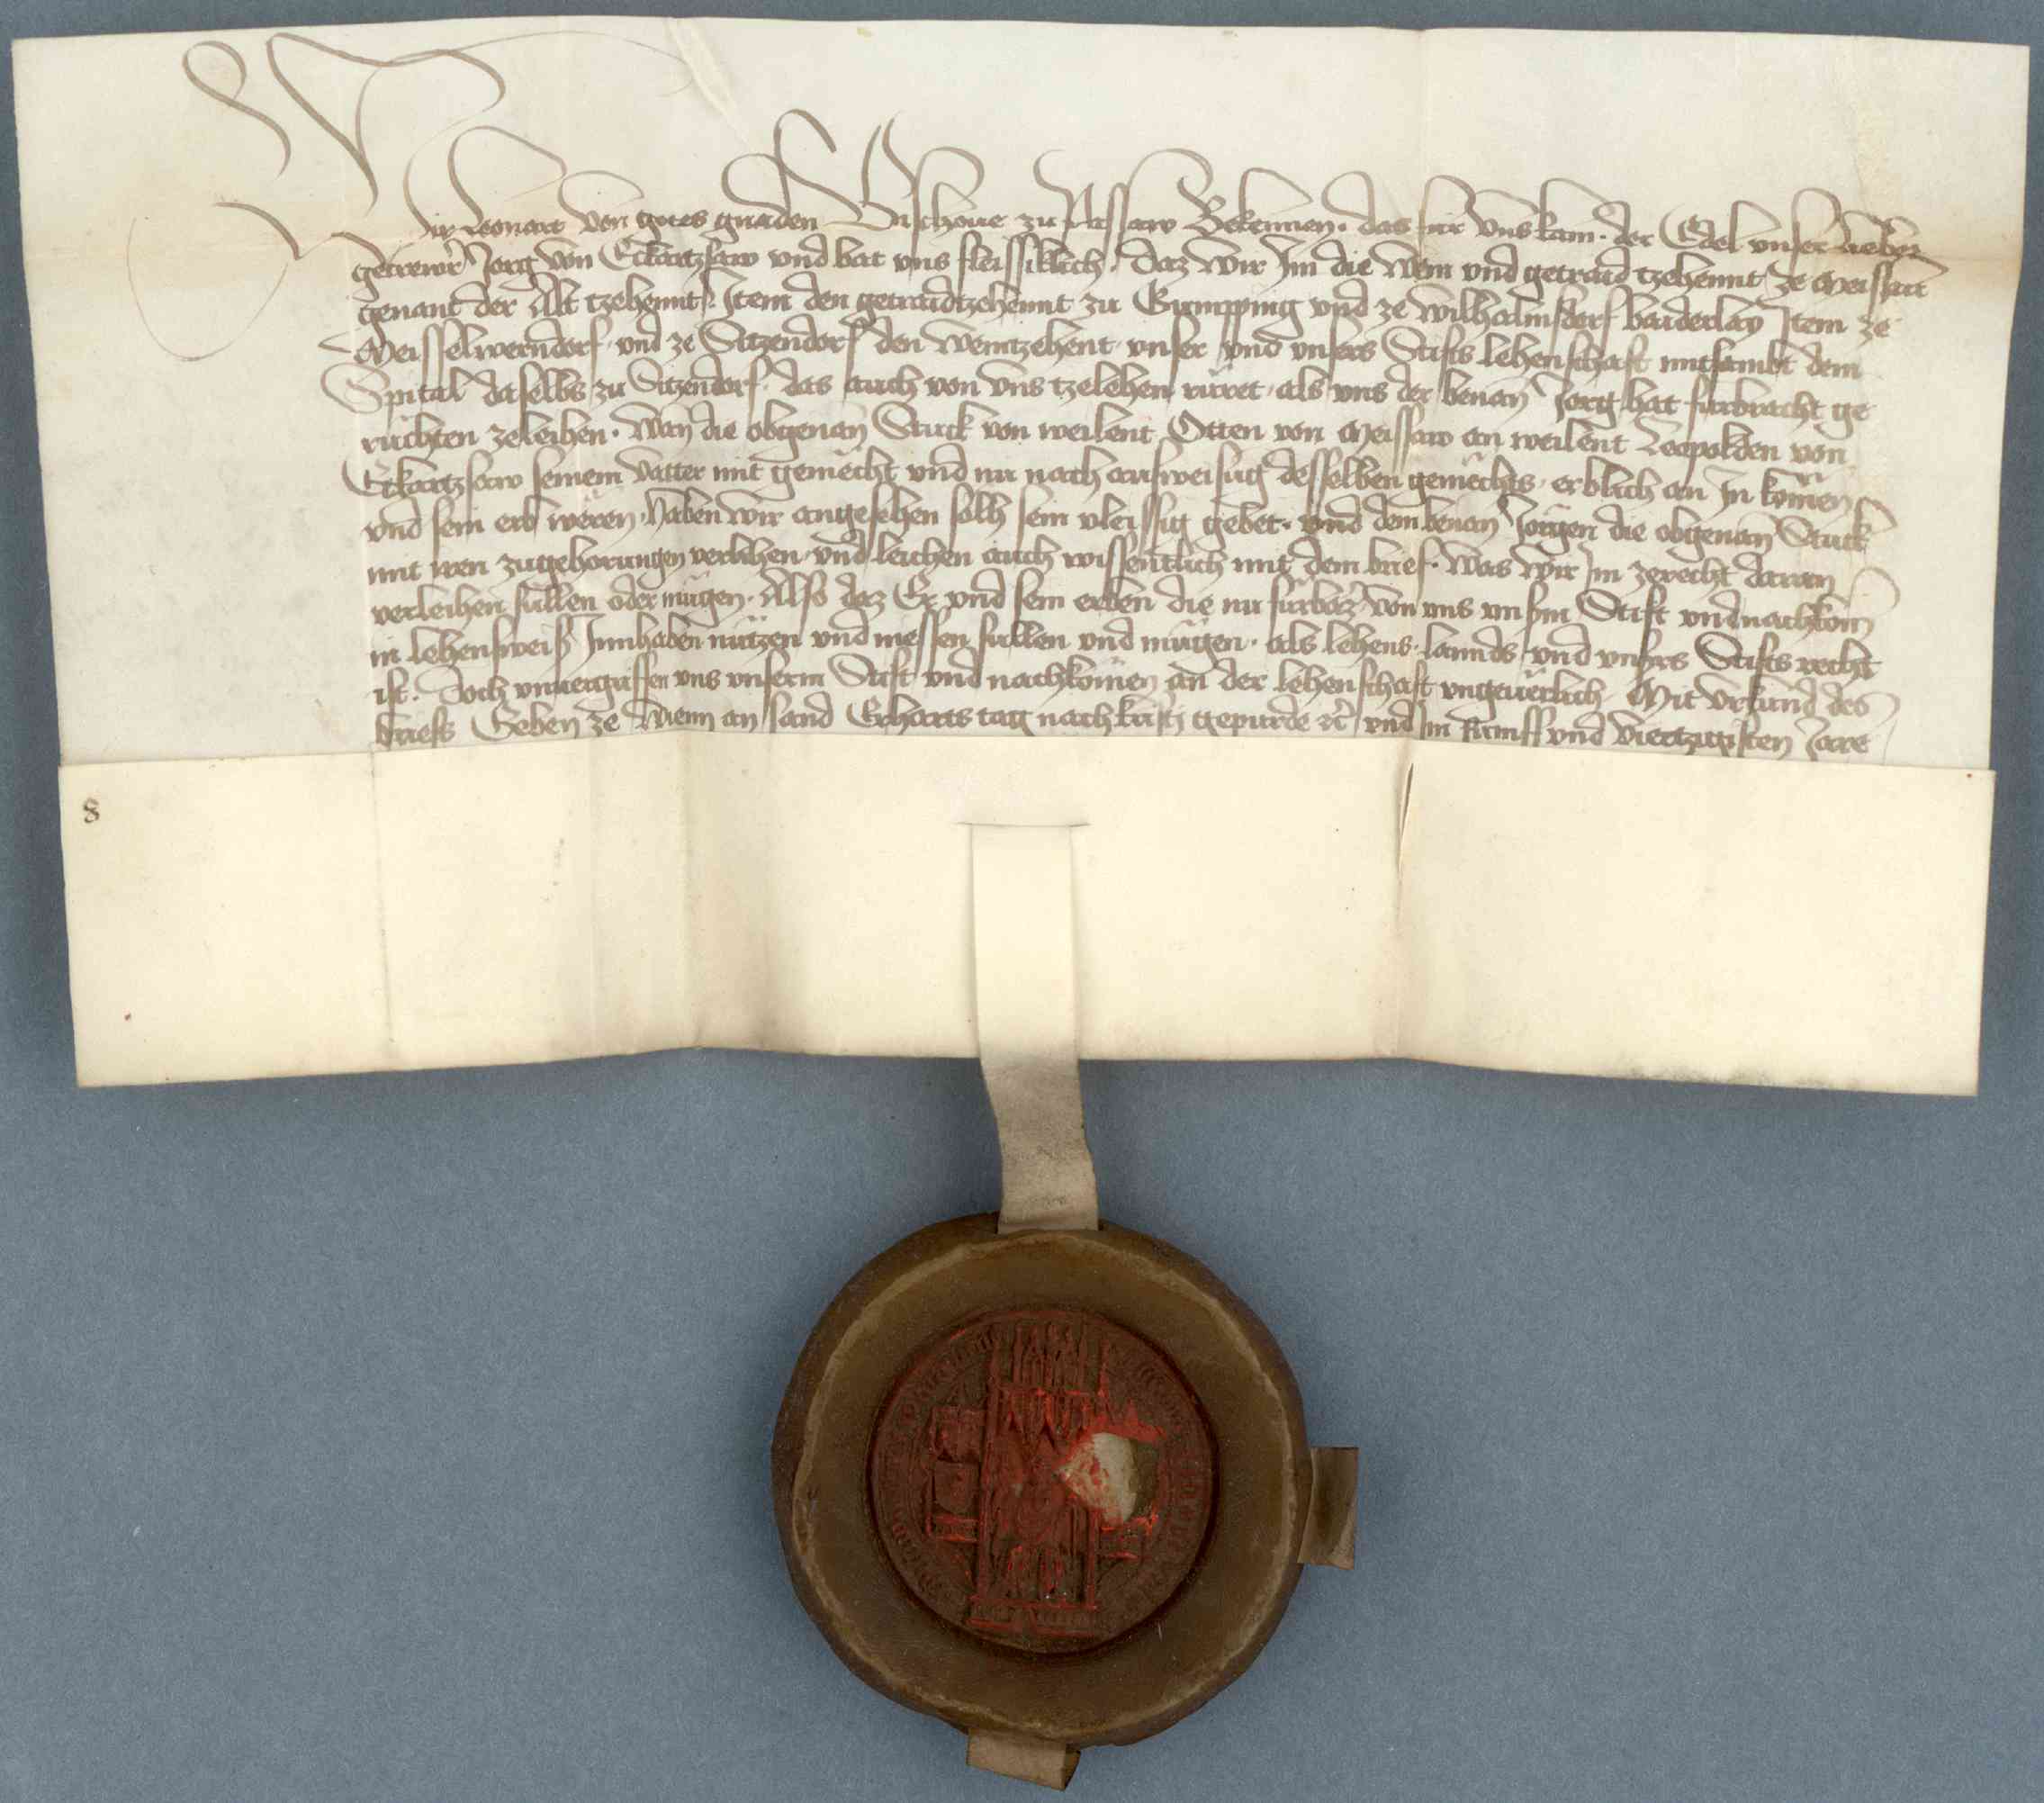 Wir Leonart von gotes gnaden Bischoue zu Passaw Bekennen. das für vns kam. der Edel vnser lieber
getrewr Jorg von Eckartzsaw vnd bat vns fleissiklich. daz wir Im die Wein vnd getraid tzehennt ze Meissaw
genant der Alt tzehennt. Item den getraidtzehennt zu Gumpping vnd ze Wilhalmsdorf baiderlay Item ze
Meisselwerndorf. vnd ze Sitzendorf den weintzehent. vnser vnd vnsers Stifts lehenschaft mitsambt dem
Spital daselbs zu Sitzendorf. das auch von vns tzelehen rüret. als vns der benan Jorg hat fürbracht ge
ruchten zeleihen. Wan die obgenan Stuck von weilent Otten von Meissaw an weilent Leopolden von
Eckartzsaw seinem vatter mit gemecht vnd nu nach ausweisug desselben gemechts. erblich an In komen
vnd sein erb weren. haben wir angesehen solh sein vleissig gebet. vnd dem benan Jorigen die obgenan Stuck
mit iren zugehorungen verlihen. vnd leichen auch wissentlich mit dem brief. Was wir Im zerecht daran
verleihen sullen oder mügen. Also daz Er vnd sein erben die nu fürbaz von vns vnsm Stift vnd nachkom
in lehensweis Innhaben nutzen vnd niessen sullen vnd mügen. als lehens. lannds vnd vnsers Stifts recht
ist. Doch vnuergriffen vns vnserm Stift vnd nachkomen an der lehenschaft vngeuerlich. Mit vrkund des
briefs Geben ze Wienn an sand Erharts tag nach kristi gepurde etc vnd Im fumff vnd viertzigisten Jare
8